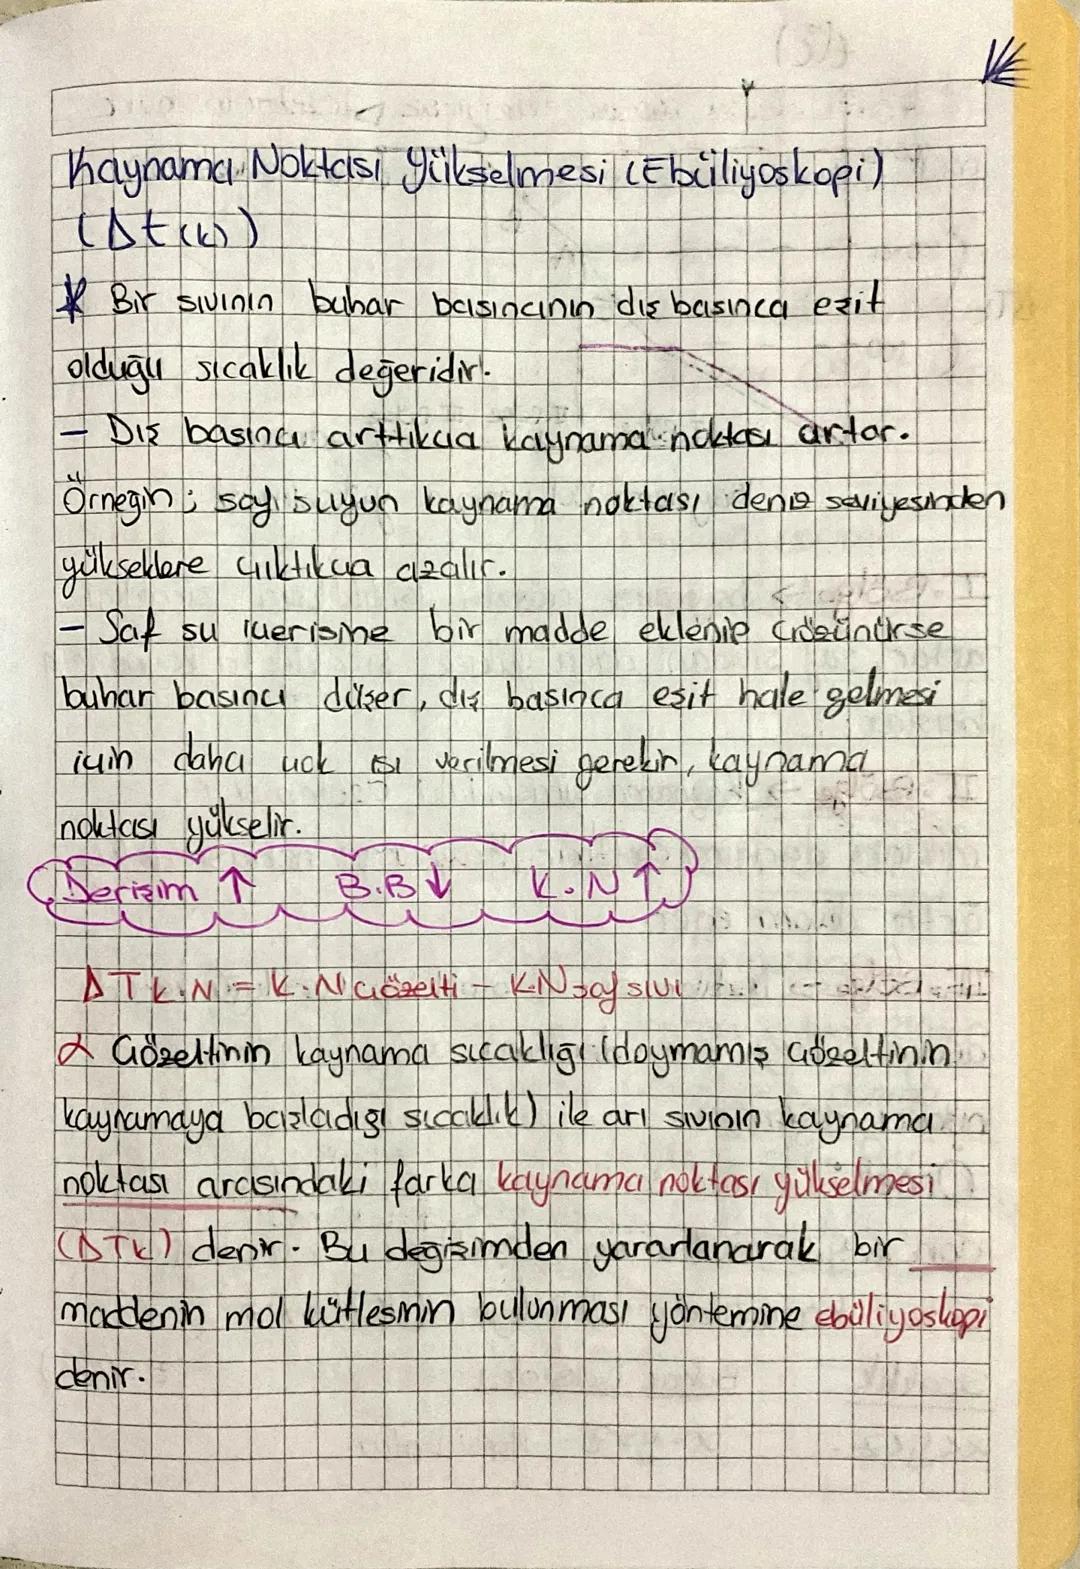 Kaynama Noktası Yükselmesi (Ebüliyoskopi)
(Δt(k))
* Bir sıvının buhar basıncının dış basınca eşit
olduğu sıcaklık değeridir.
- Dış basıncı arttıkça kaynama noktası artar.
Örneğin; saf suyun kaynama noktası deniz seviyesinden
yükseklere çıktıkça azalır.
- Saf su içerisine bir madde eklenip çözünürse
buhar basıncı düşer, dış basınca eşit hale gelmesi
için daha çok ısı verilmesi gerekir, kaynama
noktası yükselir.
Derişim ↑ B.B ↓ K.N ↑
ΔT K.N = K.N çözelti - K.N saf sıvı
α Çözeltinin kaynama sıcaklığı (doymamış çözeltinin
kaynamaya başladığı sıcaklık) ile arı sıvının kaynama
noktası arasındaki farka kaynama noktası yükselmesi
(ΔTk) denir. Bu değişimden yararlanarak bir
maddenin mol kütlesinin bulunması yöntemine ebüliyoskopi
denir.